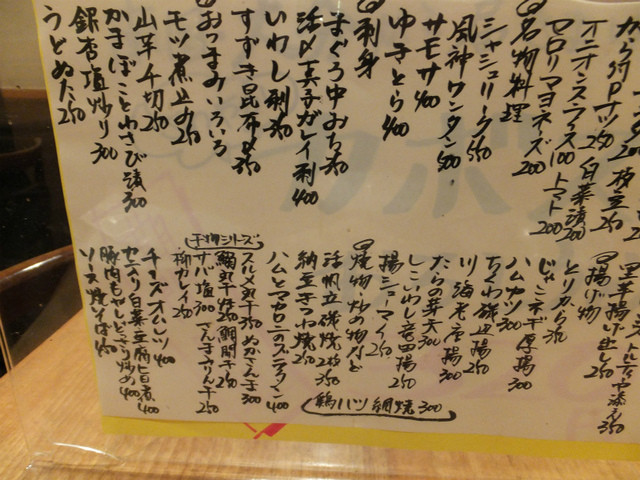 から付Pナツ200 枝豆250
オニオンスライス250 白菜漬200
マカロリマヨネーズ100 トマト200
@名物料理
シャシリーク550
風神ワンタン500
サモサ400
ゆきとら400
@刺身
まぐろ中おち350
活〆真子ガレイ刺400
いわし刺350
すずき昆布〆350
@おつまみいろいろ
モツ煮込み250
山芋千切250
かまぼことわさび漬300
銀杏塩炒り300
うどぬた250
厚揚げ出し250
@揚げ物
とりから350
じゃこネギ厚揚300
ハムカツ300
ちくわ磯辺揚250
川海老唐揚300
たらの芽天300
しこいわし竜田揚250
揚シューマイ250
@焼物炒め物など
活帆立磯焼350
納豆きつね焼250
ハムとマカロニのグラタン400
鶏ハツ網焼300
干物シリーズ
スルメ丸干350 ぬかさんま300
鰯丸干250 鯛開き250
サバ塩300 さんまみりん干250
柳カレイ250
チーズオムレツ400
カニ入り白菜豆腐旨煮400
豚肉もやしどっさり炒め400
ソース焼そば450